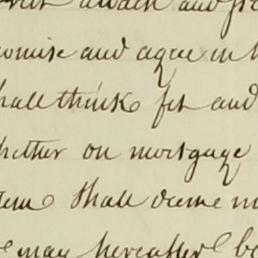 award and
promise and agree in
shall think fit and
whether on mortgage
shall deem
may hereafter be